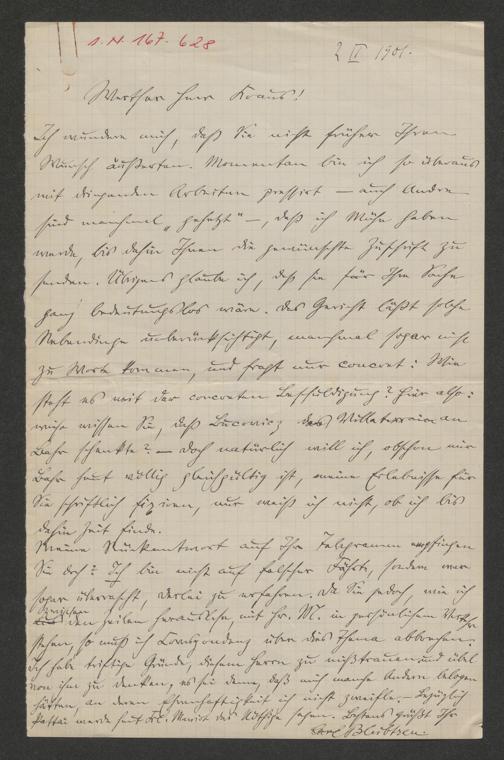 I. N. 167.628
2 II 1901.
Werther Herr Kraus!
Ich wundere mich, daß Sie nicht früher Ihren
Wunsch äußerten. Momentan bin ich so überaus
mit dringenden Arbeiten pressirt — auch Andre
sind manchmal „gehetzt" —, daß ich Mühe haben
werde, bis dahin Ihnen die gewünschte Zuschrift zu
senden. Übrigens glaube ich, daß sie für Ihre Sache
ganz bedeutungslos wäre. Das Gericht läßt solche
Nebendinge unberücksichtigt, manchmal sogar nicht
zu Worte kommen, und fragt nur concret: Wie
steht es mit der concreten Beschuldigung? Hier also:
wieso wissen Sie, daß Bucovicz das Villaterrain an
Bahr schenkte? — Doch natürlich will ich, obschon mir
Bahr heut völlig gleichgültig ist, meine Erlebnisse für
Sie schriftlich fixiren, nur weiß ich nicht, ob ich bis
dahin Zeit finde.
Meine Rückantwort auf Ihr Telegramm empfingen
Sie doch? Ich bin nicht auf falscher Fährte, sondern war
sogar überrascht, derlei zu erfahren. Da Sie jedoch, wie ich
zwischen den Zeilen herauslese mit Hr. M. in persönlichem
stehen, so muß ich Correspondenz über dies Thema abbrechen.
Ich habe triftige Gründe, diesem Herrn zu mißtrauen und übel
von ihm zu denken, es sei denn, daß mich manche Andern belogen
hätten, an deren Ehrenhaftigkeit ich nicht zweifle. — Bezüglich
werde heut Frl. das Nöthige sehen. Bestens grüßt Ihr
Carl Bleibtreu.